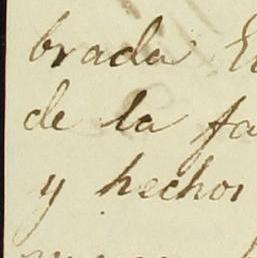 brada
de la fa
y hechos